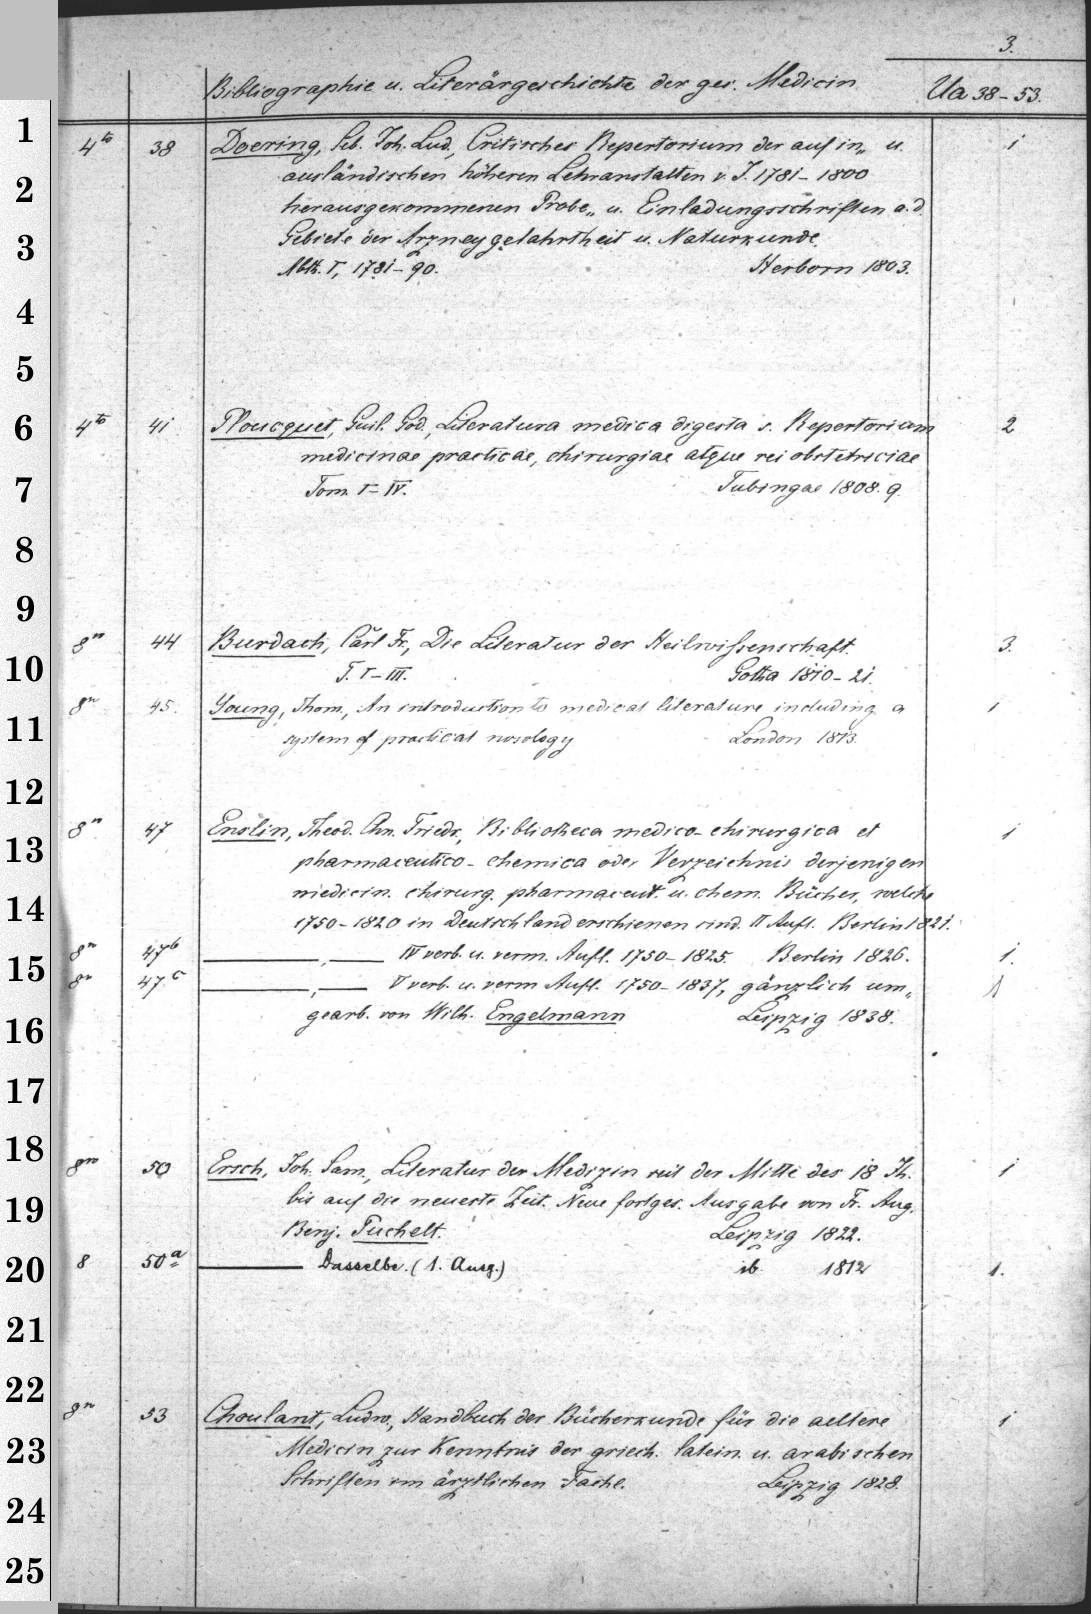 3.
Bibliographie u. Literärgeschichte der ges. Medicin Ua 38-53.
1
4to 38 Doering, Seb. Joh. Lud., Critisches Repertorium der auf in„ u. 1
2 ausländischen höheren Lehranstalten v. J. 1781-1800
herausgekommenen Probe„ u. Einladungsschriften a. d.
3 Gebiete der Arzneygelahrtheit u. Naturkunde.
Abth. I, 1781-90. Herborn 1803.
4
5
6 4to 41 Ploucquet, Guil. God., Literatura medica digesta s. Repertorium 2
medicinae practicae, chirurgiae atque rei obstetriciae
7 Tom. I-IV. Tubingae 1808. 9.
8
9
8o 44 Burdach, Carl Fr., Die Literatur der Heilwissenschaft. 3.
10 T. I-III. Gotha 1810-21.
8o 45. Young, Thom., An introduction to medical literature including a 1
11 system of practical nosology London 1813.
12
8o 47 Enslin, Theod. Chn. Friedr., Bibliotheca medico-chirurgica et 1
13 pharmaceutico-chemica oder Verzeichnis derjenigen
medicin. chirurg. pharmaceut. u. chem. Bücher, welche
14 1750-1820 in Deutschland erschienen sind. II Aufl. Berlin 1821.
8o 47b ———, —— IV verb. u. verm. Aufl. 1750-1825. Berlin 1826. 1.
15 8o 47.c ———, —— V verb. u. verm Aufl. 1750-1837, gänzlich um„ 1
16 gearb. von Wilh. Engelmann Leipzig 1838.
17
18
8vo 50 Ersch, Joh. Sam., Literatur der Medizin seit der Mitte des 18 Jh. 1
19 bis auf die neueste Zeit. Neue fortges. Ausgabe von Fr. Aug.
Benj. Puchelt. Leipzig 1822.
20 8 50a ——— Dasselbe. (1. Ausg.) ib. 1812 1.
21
22
8o 53 Choulant, Ludw., Handbuch der Bücherkunde für die aeltere 1
23 Medicin zur Kenntnis der griech. latein. u. arabischen
Schriften im ärztlichen Fache. Leipzig 1828.
24
25